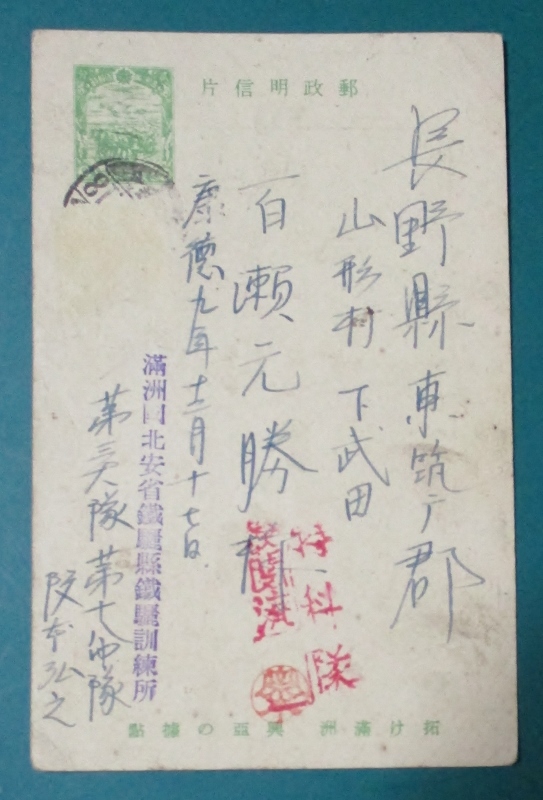 郵政明信片
長野縣東筑广郡
山形村 下武田
百瀬元勝様
康德九年十二月十七日
滿洲國北安省鐵驪縣鐵驪訓練所
第三大隊第七中隊
阪本弘之
特科隊
檢閱濟
拓け滿洲 興亞の據點